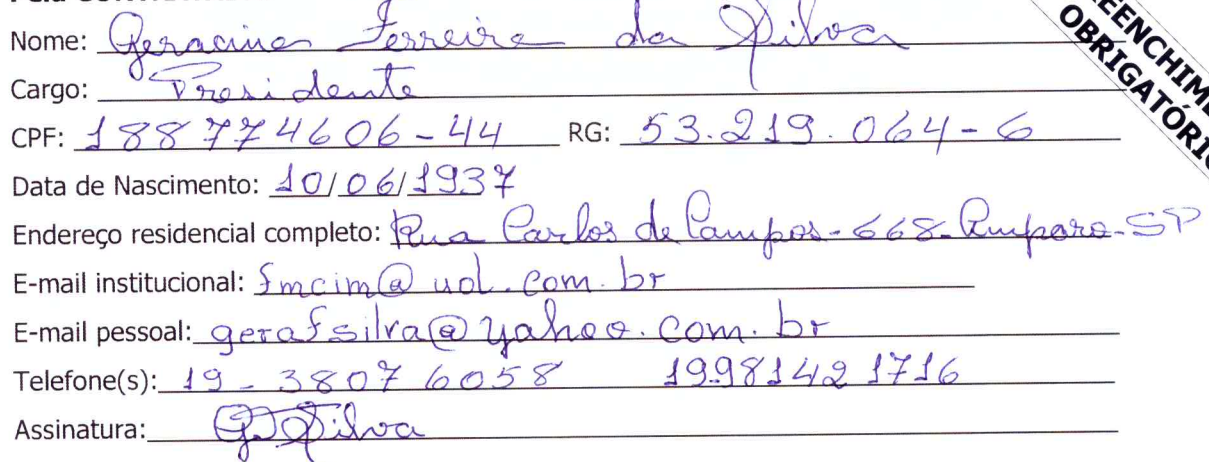 Nome: Geracina Ferreira da Silva
Cargo: Presidente
CPF: 188774606-44 RG: 53.219.064-6
Data de Nascimento: 10/06/1937
Endereço residencial completo: Rua Carlos de Campos-668-Amparo-SP
E-mail institucional: fmcim@uol.com.br
E-mail pessoal: gerafsilva@yahoo.com.br
Telefone(s): 19-38076058 19.981421716
Assinatura: GFSilva
OBRIGATÓRIO